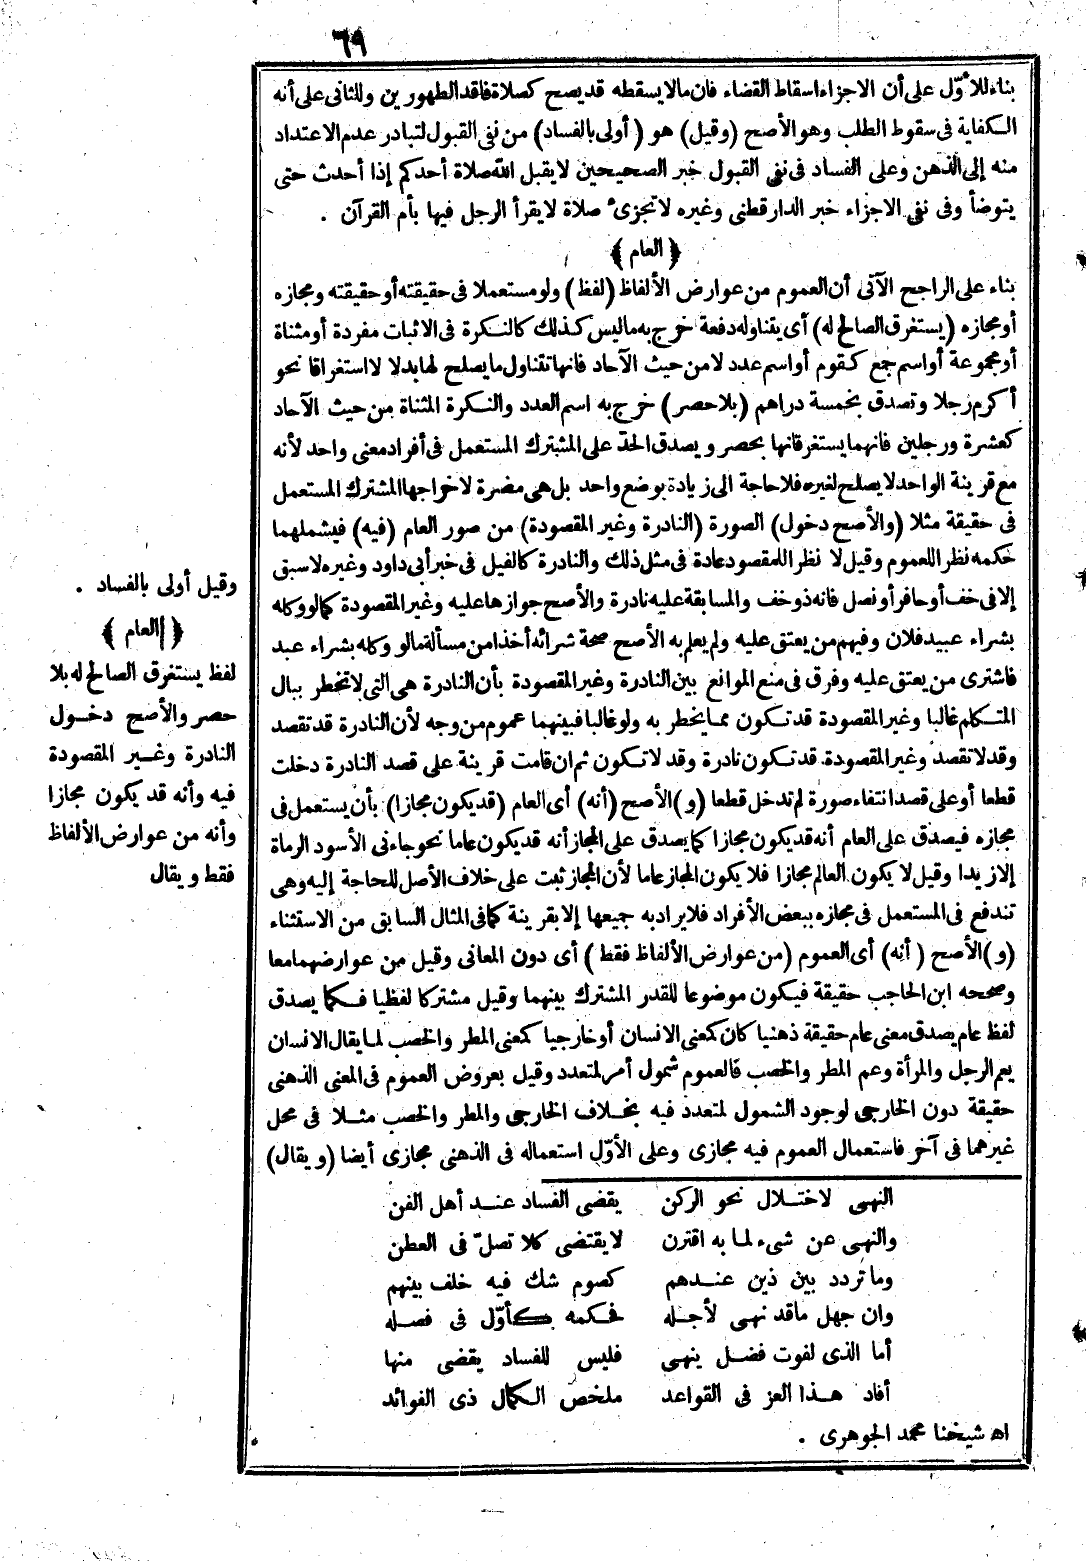 ٦٩
بناء للأوّل على أن الاجزاء اسقاط القضاء فان مالا يسقطه قد يصح كصلاة فاقد الطهورين وللثانى على أنه
الكفاية فى سقوط الطلب وهو الأصح (وقيل) هو (أولى بالفساد) من نفى القبول لتبادر عدم الاعتداد
منه إلى الذهن وعلى الفساد فى نفى القبول خبر الصحيحين لا يقبل الله صلاة أحدكم إذا أحدث حتى
يتوضأ وفى نفى الاجزاء خبر الدارقطنى وغيره لا تجزىء صلاة لا يقرأ الرجل فيها بأم القرآن .
﴿ العام ﴾
بناء على الراجح الآتى أن العموم من عوارض الألفاظ (لفظ) ولو مستعملا فى حقيقته أو حقيقته ومجازه
أو مجازه (يستغرق الصالح له) أى يتناوله دفعة خرج به ما ليس كذلك كالنكرة فى الاثبات مفردة أو مثناة
أو مجموعة أو اسم جمع كقوم أو اسم عدد لا من حيث الآحاد فانها تتناول ما يصلح لها بدلا لا استغراقا نحو
أكرم رجلا وتصدق بخمسة دراهم (بلا حصر) خرج به اسم العدد والنكرة المثناة من حيث الآحاد
كعشرة ورجلين فانهما يستغرقانها بحصر ويصدق الحدّ على المشترك المستعمل فى أفراد معنى واحد لأنه
مع قرينة الواحد لا يصلح لغيره فلا حاجة الى زيادة بوضع واحد بل هى مضرة لاخراجها المشترك المستعمل
فى حقيقة مثلا (والأصح دخول) الصورة (النادرة وغير المقصودة) من صور العام (فيه) فيشملهما
حكمه نظرا للعموم وقيل لا نظرا للمقصود عادة فى مثل ذلك والنادرة كالفيل فى خبر أبى داود وغيره لا سبق
إلا فى خف أو حافر أو نصل فانه ذو خف والمسابقة عليه نادرة والأصح جوازها عليه وغير المقصودة كما لو وكله
بشراء عبيد فلان وفيهم من يعتق عليه ولم يعلم به الأصح صحة شرائه أخذا من مسألة ما لو وكله بشراء عبد
فاشترى من يعتق عليه وفرق فى منع الموانع بين النادرة وغير المقصودة بأن النادرة هى التى لا تخطر ببال
المتكلم غالبا وغير المقصودة قد تكون مما يخطر به ولو غالبا فبينهما عموم من وجه لأن النادرة قد تقصد
وقد لا تقصد وغير المقصودة قد تكون نادرة وقد لا تكون ثم ان قامت قرينة على قصد النادرة دخلت
قطعا أو على قصد انتفاء صورة لم تدخل قطعا (و) الأصح (أنه) أى العام (قد يكون مجازا) بأن يستعمل فى
مجازه فيصدق على العام أنه قد يكون مجازا كما يصدق على المجاز أنه قد يكون عاما نحو جاءنى الأسود الرماة
إلا زيدا وقيل لا يكون العالم مجازا فلا يكون المجاز عاما لأن المجاز ثبت على خلاف الأصل للحاجة إليه وهى
تندفع فى المستعمل فى مجازه ببعض الأفراد فلا يراد به جميعها إلا بقرينة كما فى المثال السابق من الاستثناء
(و) الأصح (أنه) أى العموم (من عوارض الألفاظ فقط) أى دون المعانى وقيل من عوارضهما معا
وصححه ابن الحاجب حقيقة فيكون موضوعا للقدر المشترك بينهما وقيل مشتركا لفظيا فكما يصدق
لفظ عام يصدق معنى عام حقيقة ذهنيا كان كمعنى الانسان أو خارجيا كمعنى المطر والخصب لما يقال الانسان
يعم الرجل والمرأة وعم المطر والخصب فالعموم شمول أمر لمتعدد وقيل بعروض العموم فى المعنى الذهنى
حقيقة دون الخارجى لوجود الشمول لمتعدد فيه بخلاف الخارجى والمطر والخصب مثلا فى محل
غيرهما فى آخر فاستعمال العموم فيه مجازى وعلى الأوّل استعماله فى الذهنى مجازى أيضا (ويقال)
وقيل أولى بالفساد .
﴿ العام ﴾
لفظ يستغرق الصالح له بلا
حصر والأصح دخول
النادرة وغير المقصودة
فيه وأنه قد يكون مجازا
وأنه من عوارض الألفاظ
فقط ويقال
النهى لاختلال نحو الركن يقضى الفساد عند أهل الفن
والنهى عن شىء لما به اقترن لا يقتضى كلا تصلّ فى العطن
وما تردد بين ذين عندهم كصوم شك فيه خلف بينهم
وان جهل ما قد نهى لأجله فحكمه كأوّل فى فصله
أما الذى لفوت فضل ينهى فليس للفساد يقضى منها
أفاد هذا العز فى القواعد ملخص الكمال ذى الفوائد
اه شيخنا محمد الجوهرى .